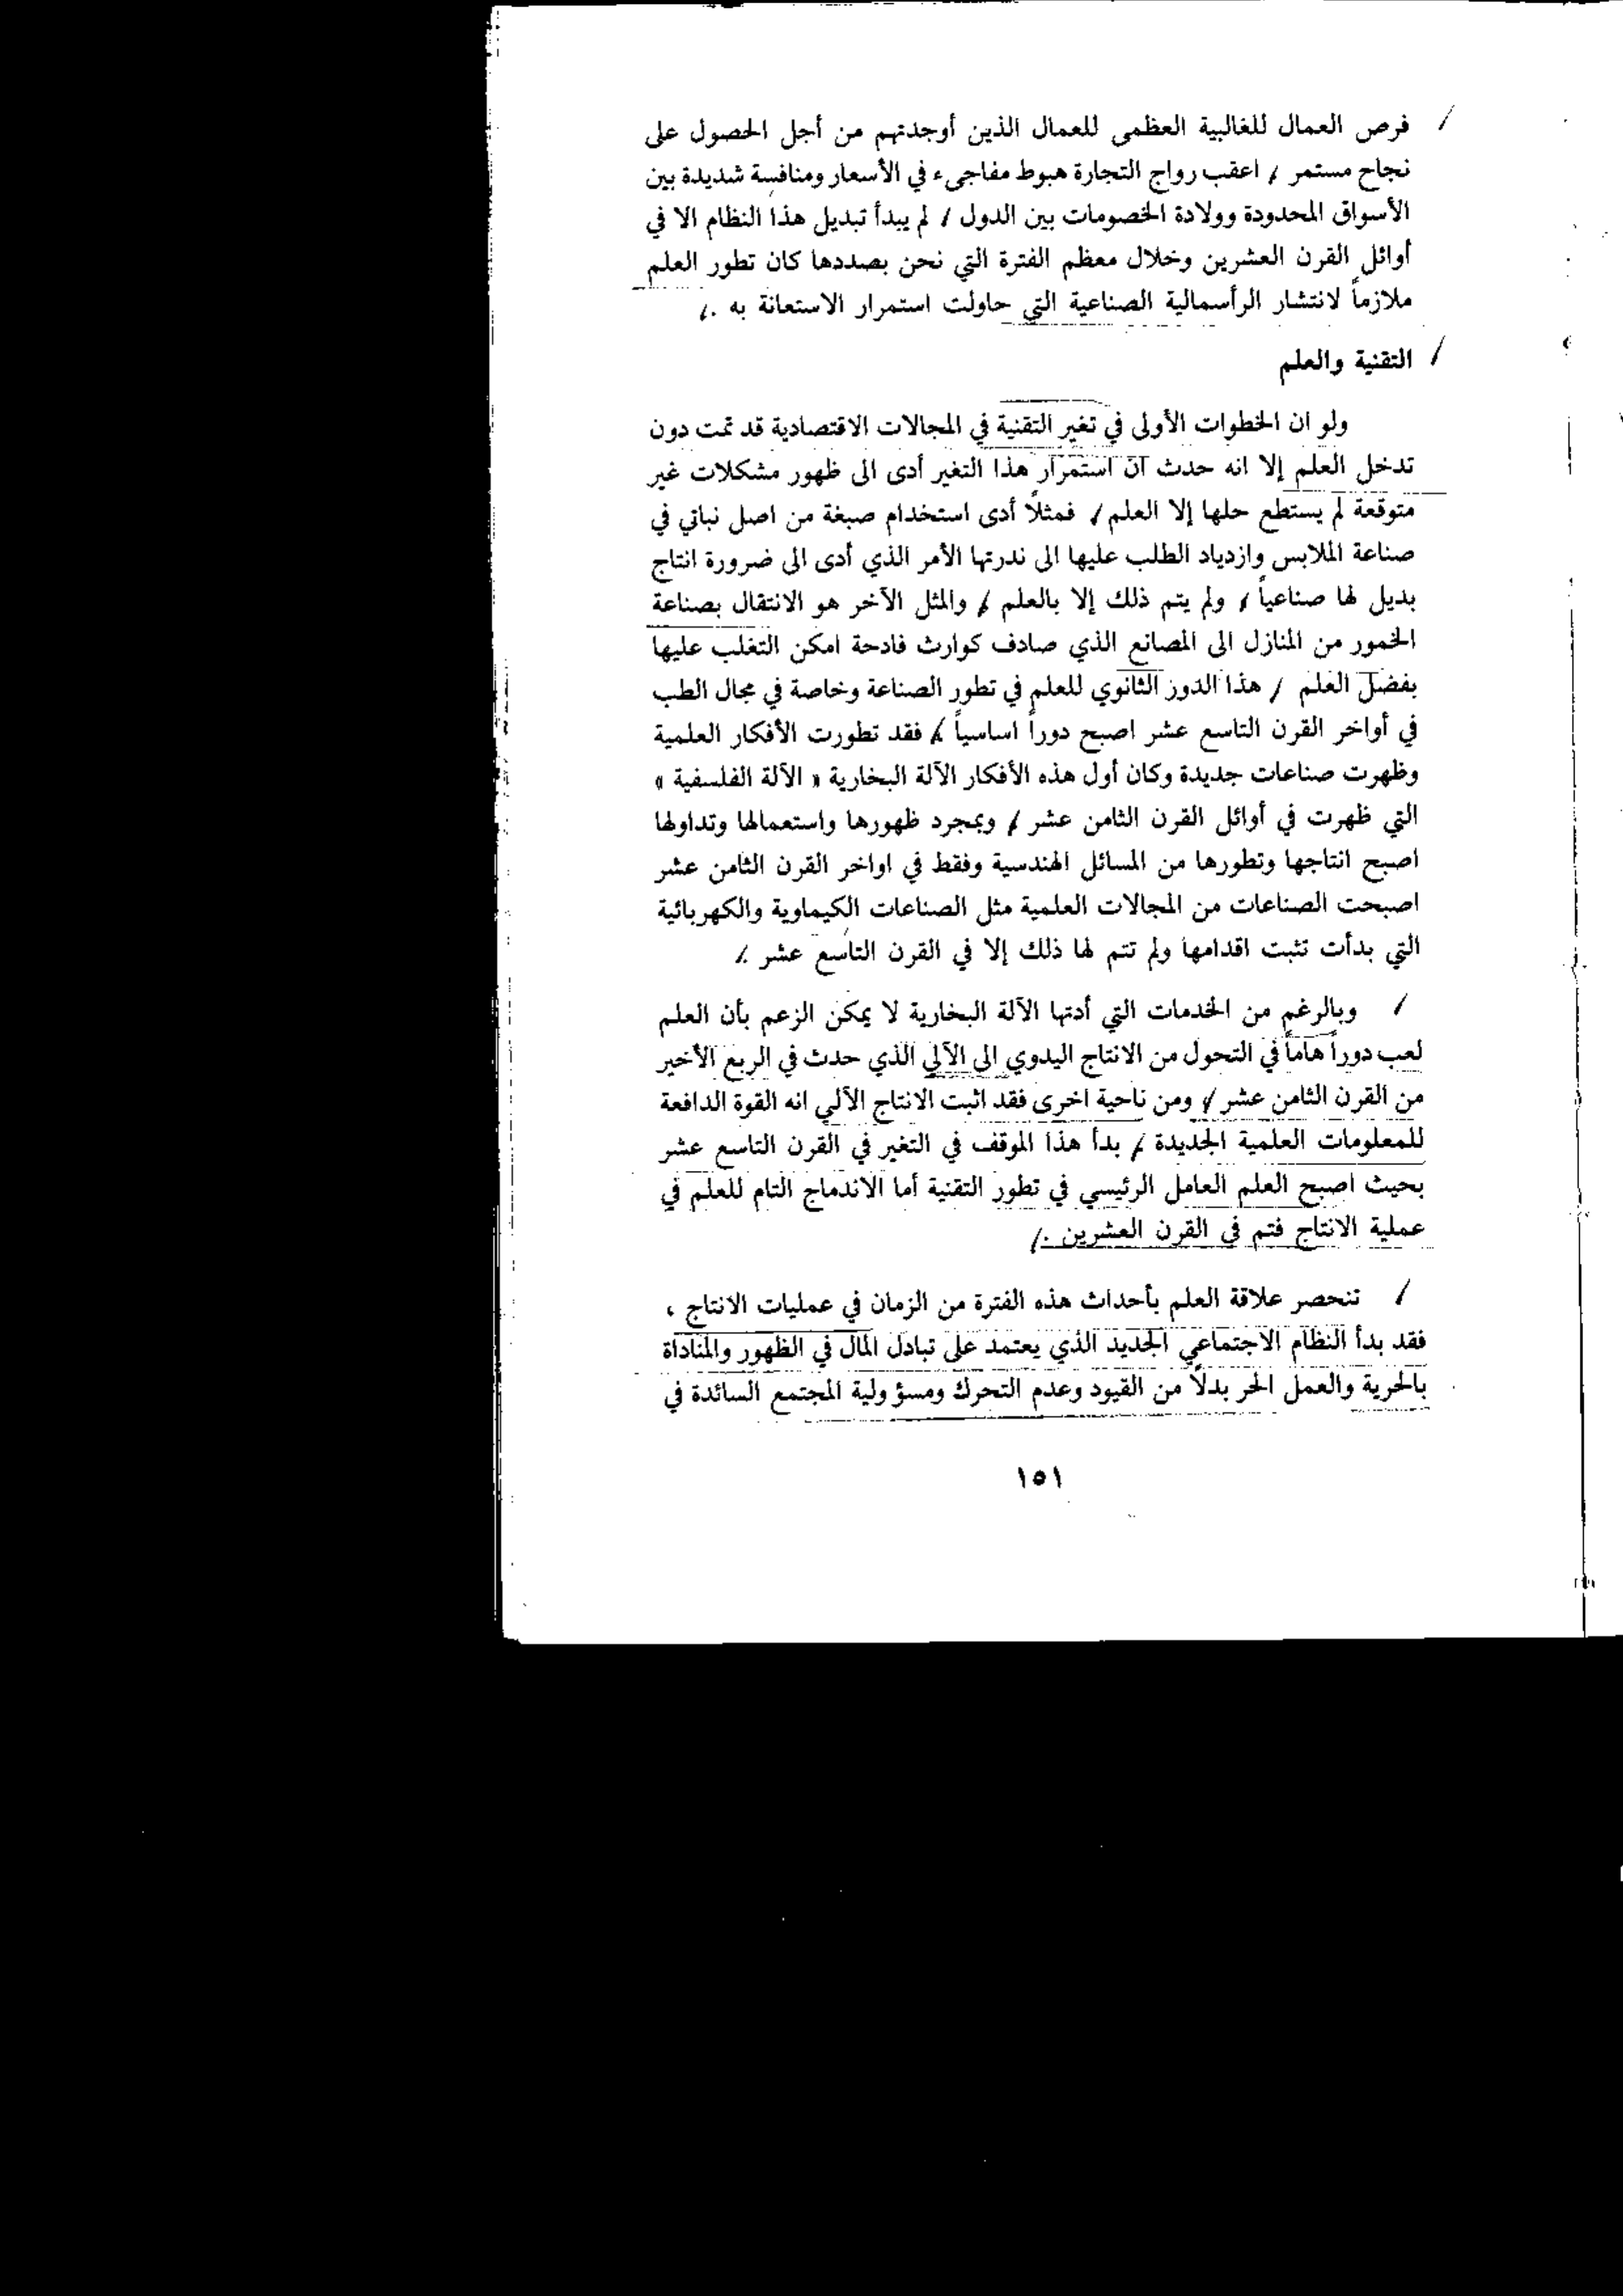 فرص العمال للغالبية العظمى للعمال الذين أوجدتهم من أجل الحصول على
نجاح مستمر / اعقب رواج التجارة هبوط مفاجىء في الأسعار ومنافسة شديدة بين
الأسواق المحدودة وولادة الخصومات بين الدول / لم يبدأ تبديل هذا النظام الا في
أوائل القرن العشرين وخلال معظم الفترة التي نحن بصددها كان تطور العلم
ملازماً لانتشار الرأسمالية الصناعية التي حاولت استمرار الاستعانة به .
التقنية والعلم
ولو ان الخطوات الأولى في تغير التقنية في المجالات الاقتصادية قد تمت دون
تدخل العلم إلا انه حدث ان استمرار هذا التغير أدى الى ظهور مشكلات غير
متوقعة لم يستطع حلها إلا العلم ، فمثلاً أدى استخدام صبغة من اصل نباتي في
صناعة الملابس وازدياد الطلب عليها الى ندرتها الأمر الذي أدى الى ضرورة انتاج
بديل لها صناعياً ، ولم يتم ذلك إلا بالعلم ، والمثل الآخر هو الانتقال بصناعة
الخمور من المنازل الى المصانع الذي صادف كوارث فادحة امكن التغلب عليها
بفضل العلم / هذا الدور الثانوي للعلم في تطور الصناعة وخاصة في مجال الطب
في أواخر القرن التاسع عشر اصبح دوراً اساسياً ، فقد تطورت الأفكار العلمية
وظهرت صناعات جديدة وكان أول هذه الأفكار الآلة البخارية « الآلة الفلسفية »
التي ظهرت في أوائل القرن الثامن عشر ، وبمجرد ظهورها واستعمالها وتداولها
اصبح انتاجها وتطورها من المسائل الهندسية وفقط في اواخر القرن الثامن عشر
اصبحت الصناعات من المجالات العلمية مثل الصناعات الكيماوية والكهربائية
التي بدأت تثبت اقدامها ولم تتم لها ذلك إلا في القرن التاسع عشر .
وبالرغم من الخدمات التي أدتها الآلة البخارية لا يمكن الزعم بأن العلم
لعب دوراً هاماً في التحول من الانتاج اليدوي الى الآلي الذي حدث في الربع الأخير
من القرن الثامن عشر ، ومن ناحية اخرى فقد اثبت الانتاج الآلي انه القوة الدافعة
للمعلومات العلمية الجديدة ، بدأ هذا الموقف في التغير في القرن التاسع عشر
بحيث اصبح العلم العامل الرئيسي في تطور التقنية أما الاندماج التام للعلم في
عملية الانتاج فتم في القرن العشرين .
تنحصر علاقة العلم بأحداث هذه الفترة من الزمان في عمليات الانتاج ،
فقد بدأ النظام الاجتماعي الجديد الذي يعتمد على تبادل المال في الظهور والمناداة
بالحرية والعمل الحر بدلاً من القيود وعدم التحرك ومسؤولية المجتمع السائدة في
١٥١